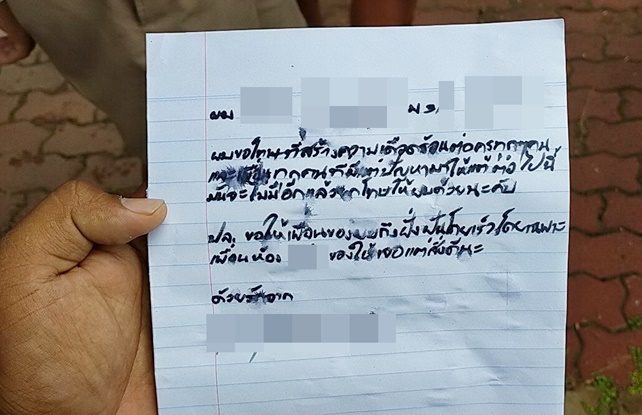 ผม ม.3
ผมขอโทษที่สร้างความเดือดร้อนต่อครูทุกๆคน
และเพื่อนทุกคนที่มีแต่ปัญหามาให้แต่ต่อไปนี้
มันจะไม่มีอีกแล้วยกโทษให้ผมด้วยนะคับ
ปล. ขอให้เพื่อนของผมถึงฝั่งฝันโดยเร็วโดยเฉพาะ
เพื่อนห้อง ขอให้เจอแต่สิ่งดีนะ
ด้วยรักจาก